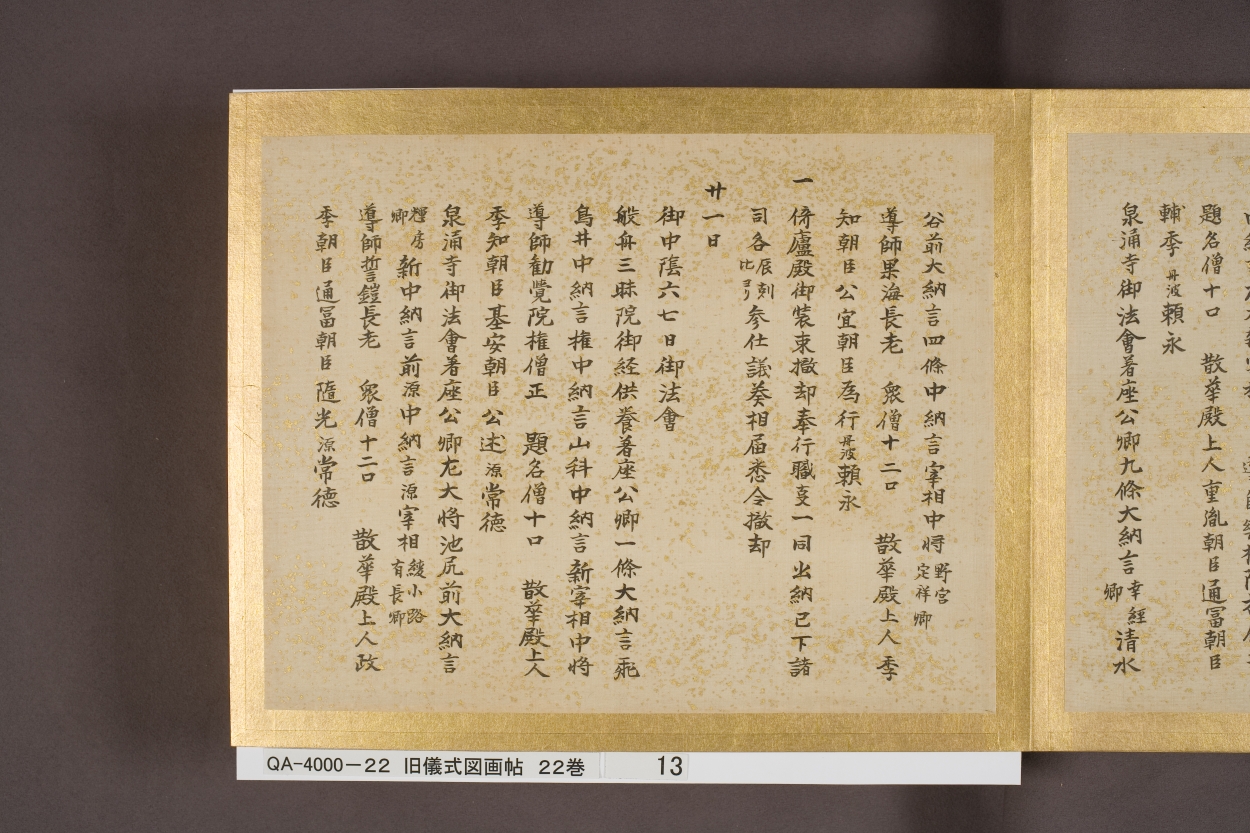 題名僧十口　散華殿上人重胤朝臣通冨朝臣
輔季丹波頼永
泉涌寺御法會著座公卿九條大納言幸經卿清水
谷前大納言四條中納言宰相中将野宮定祥卿
導師果海長老　衆僧十二口　散華殿上人季
知朝臣公宜朝臣為行丹波頼永
一倚廬殿御装束撤却奉行職事一同出納已下諸
司各辰刻比ヨリ参仕議奏相届悉令撤却
廿一日
御中陰六七日御法會
般舟三昧院御経供養著座公卿一條大納言飛
鳥井中納言権中納言山科中納言新宰相中将
導師勧覺院権僧正　題名僧十口　散華殿上人
季知朝臣基安朝臣公述源常徳
泉涌寺御法會著座公卿左大将池尻前大納言
卿新中納言前源中納言源宰相綾小路有長卿
導師誓鎧長老　衆僧十二口　散華殿上人政
季朝臣通冨朝臣隨光源常徳
QA-4000-22 旧儀式図画帖 22巻 13